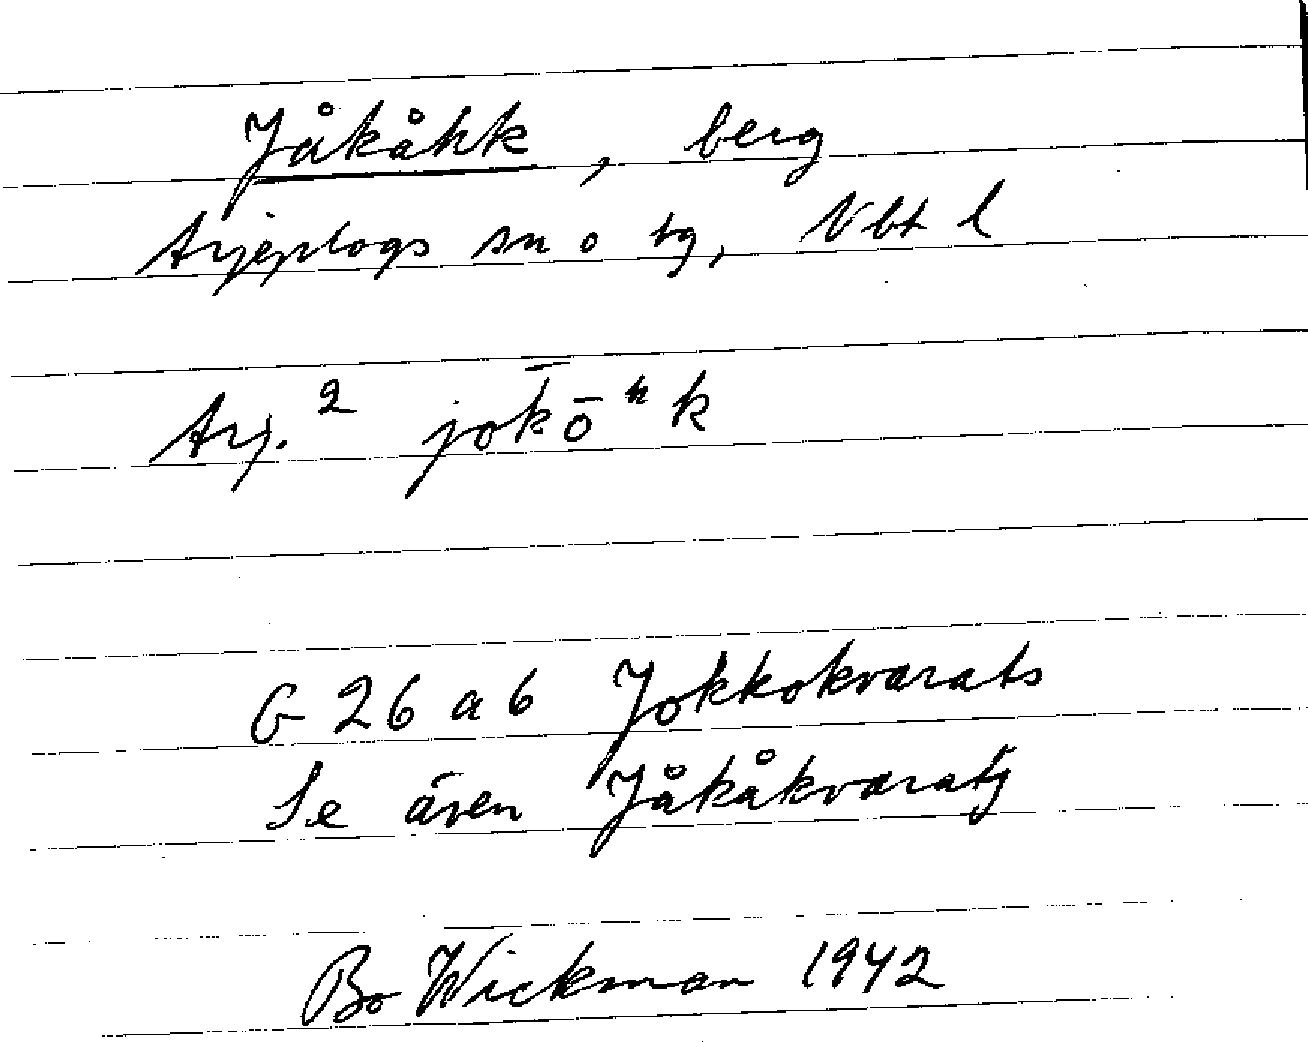 Jåkåhk, berg
Arjeplogs sn o tg, Nbt l
Arj.² jok̄ōʰk
G 26 a b Jokkokvarats
Se även Jåkåkvaratj
Bo Wickman 1942